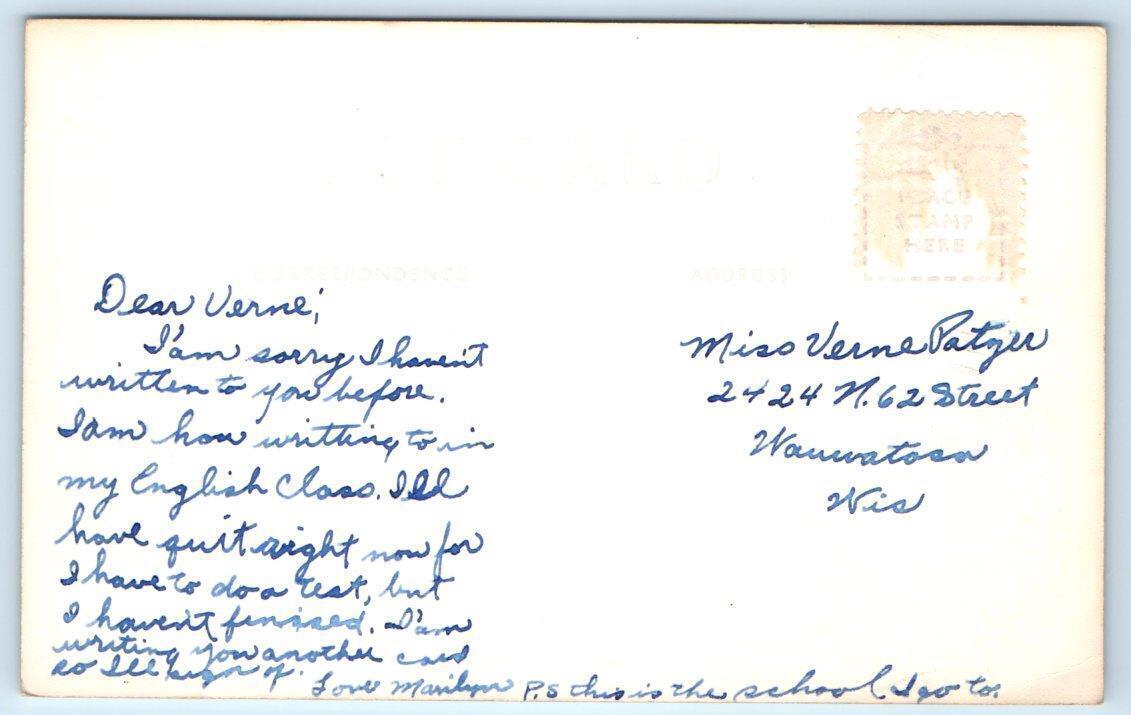 POST CARD
PLACE
STAMP
HERE
CORRESPONDENCE
ADDRESS
Dear Verne;
I'am sorry I haven't
written to you before.
I am how writting to in
my English Class. I'll
have quit right now for
I have to do a test, but
I haven't finissed. I'am
writing you another card
so I'll sign of.
Love Marilynn P.S this is the school I go to.
Miss Verne Patzer
2424 N. 62 Street
Wauwatosa
Wis